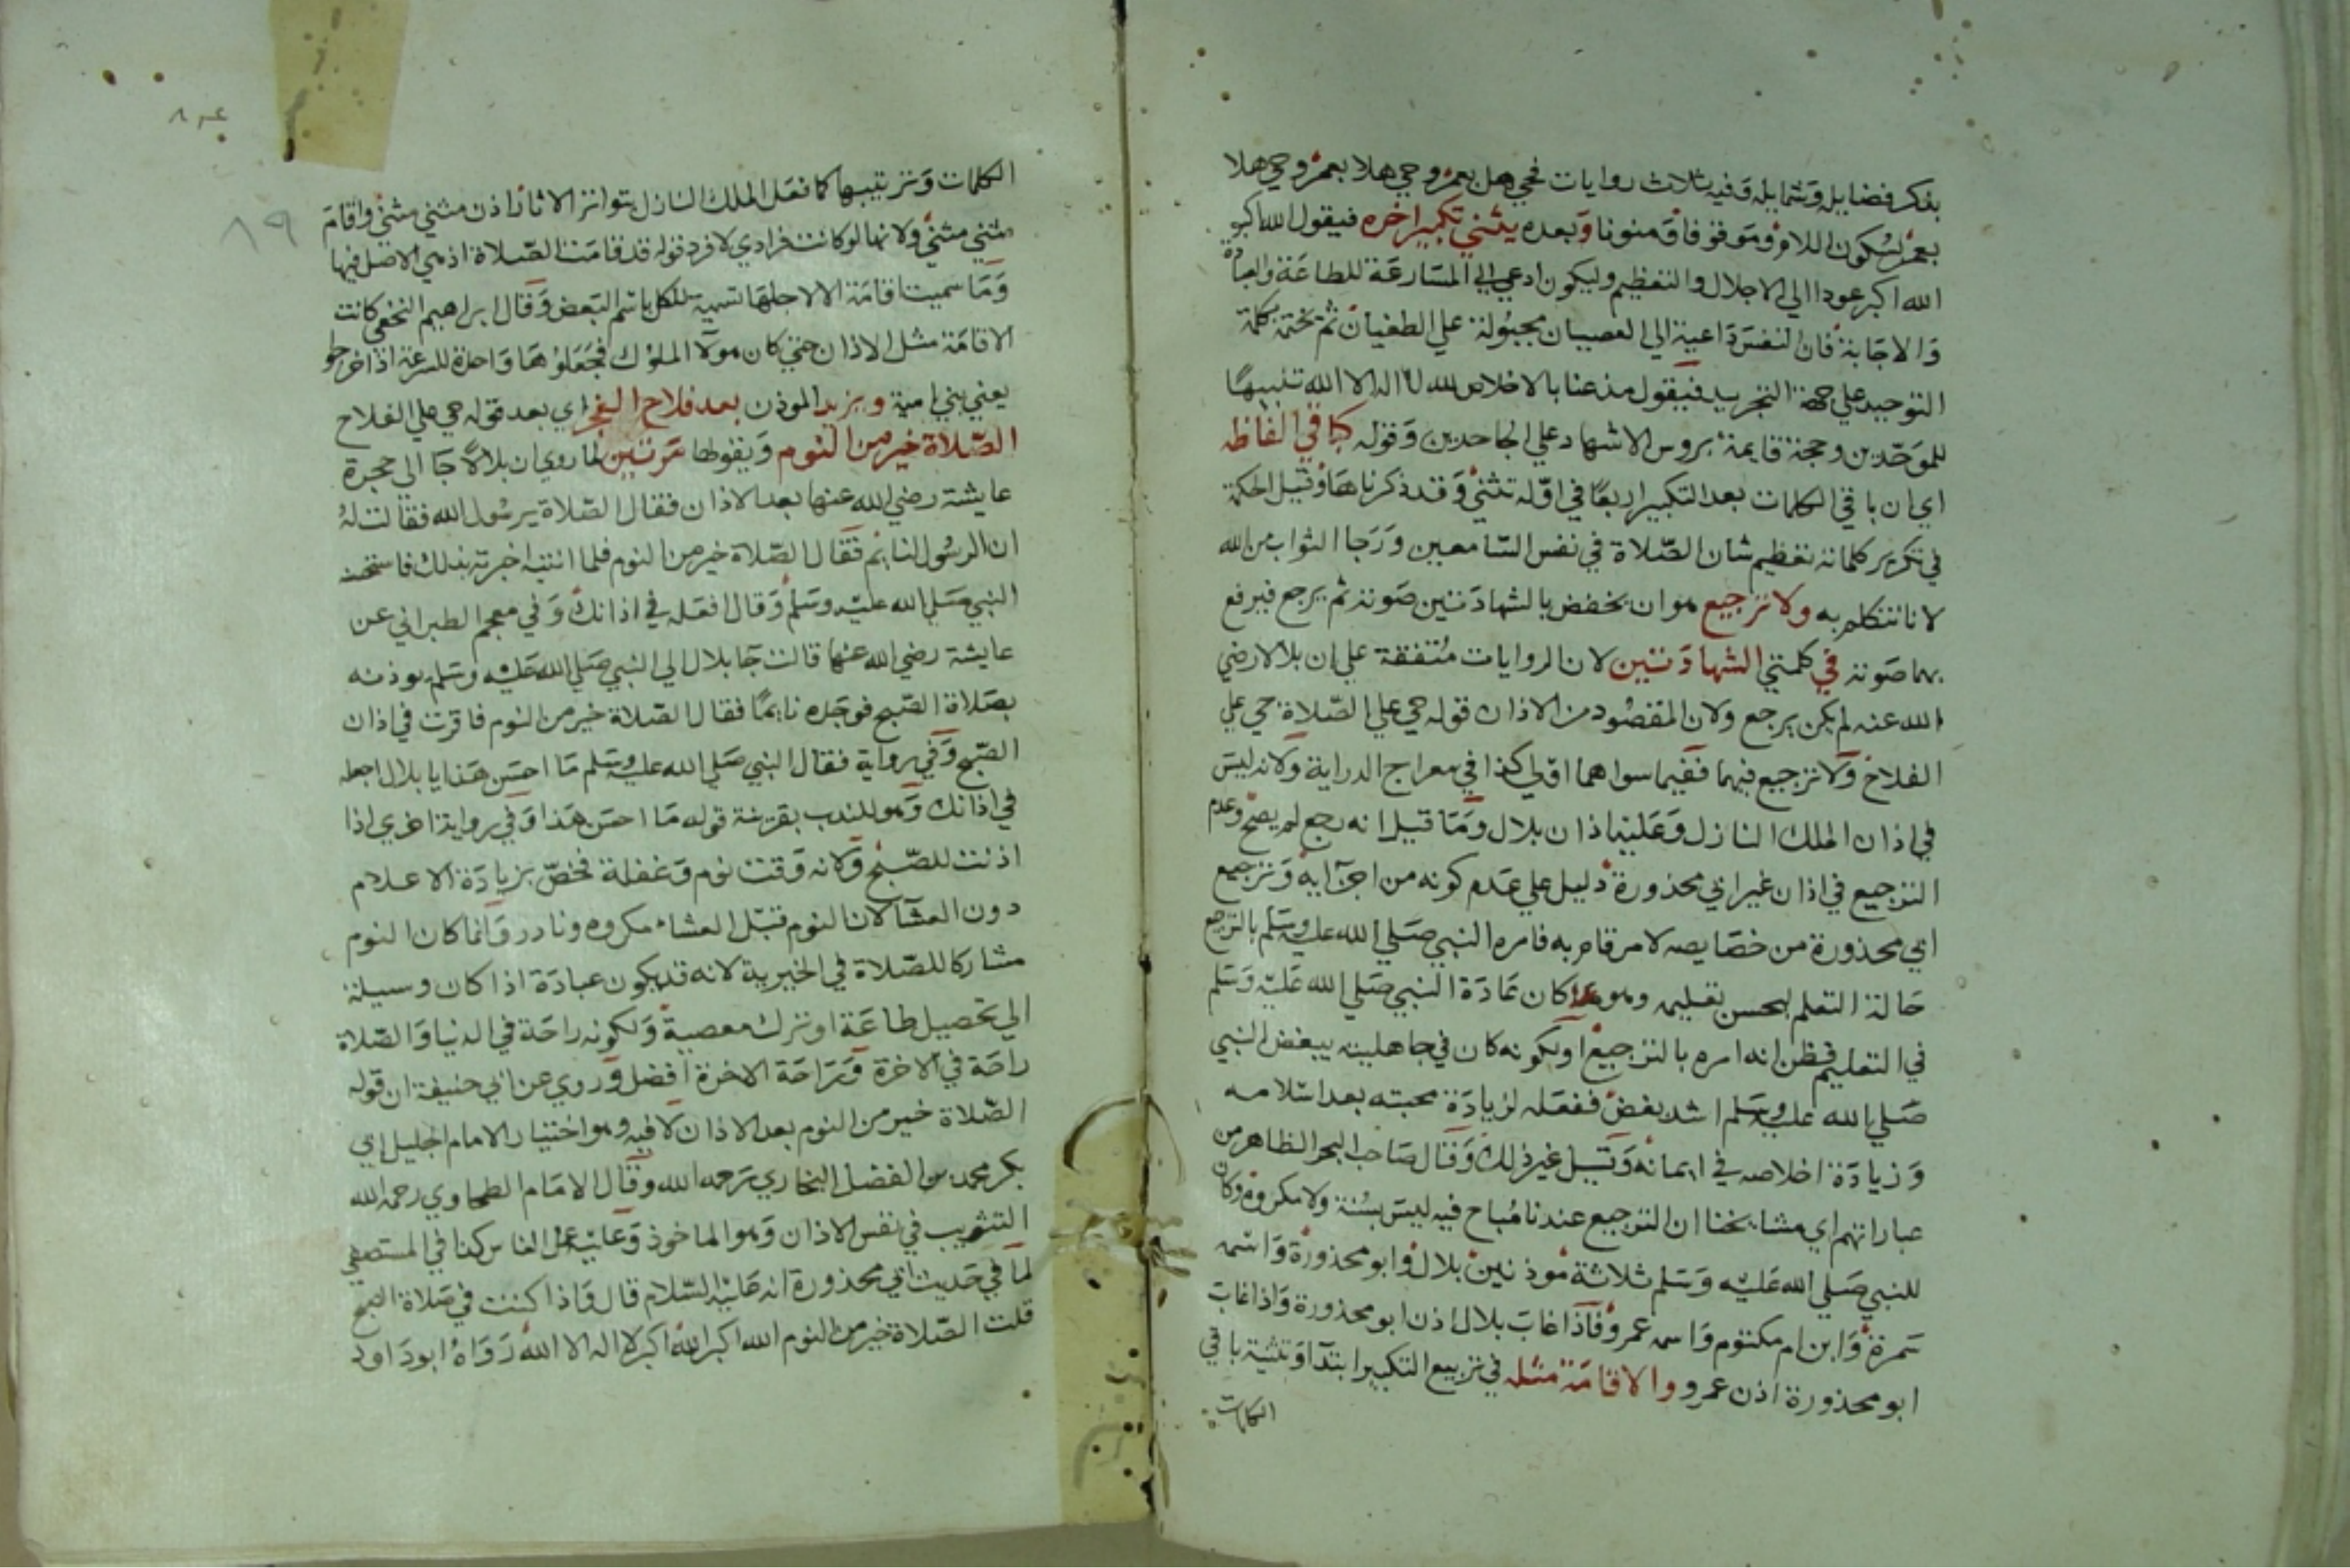 بذكر فضايله وشمايله وفيه ثلاث روايات فحي هل بعمر وحي هلا بعمر وحي هلا
بعمر بسكون اللام وموقوفا ومنونا وبعده يثني تكبير اخره فيقول الله اكبر
الله اكبر عودا الي الاجلال والتعظيم وليكون ادعي الي المسارعة للطاعة والعبادة
والاجابة فان النفس داعية الي العصيان مجبولة علي الطغيان ثم يختمه بكلمة
التوحيد علي جهة التجريد فيقول مذعنا بالاخلاص لله لا اله الا الله تنبيها
للموحدين وحجة قايمة بروس الاشهاد علي الجاحدين وقوله كباقي الفاظه
اي ان باقي الكلمات بعد التكبير اربعا في اوله تثني وقد ذكرناها وقيل الحكمة
في تكرير كلماته تعظيم شان الصلاة في نفس السامعين ورجا الثواب من الله
لانا نتكلم به ولا ترجيع هو ان يخفض بالشهادتين صوته ثم يرجع فيرفع
بهما صوته في كلمتي الشهادتين لان الروايات متفقة علي ان بلالا رضي
الله عنه لم يكن يرجع ولان المقصود من الاذان قوله حي علي الصلاة حي علي
الفلاح ولا ترجيع فيهما ففيما سواهما اولي كذا في معراج الدراية ولانه ليس
في اذان الملك النازل وعليه اذان بلال وما قيل انه رجع لم يصح وعدم
الترجيع في اذان غير ابي محذورة دليل علي عدم كونه من اجزآيه وترجيع
ابي محذورة من خصايصه لامر قام به فامره النبي صلي الله عليه وسلم بالترجيع
حالة التعلم ليحسن تعليمه وهو كان عادة النبي صلي الله عليه وسلم
في التعليم فظن انه امره بالترجيع او لكونه كان في جاهليته يبغض النبي
صلي الله عليه وسلم اشد بغض ففعله لزيادة محبته بعد اسلامه
وزيادة اخلاصه في ايمانه وقيل غير ذلك وقال صاحب البحر الظاهر من
عباراتهم اي مشايخنا ان الترجيع عندنا مباح فيه ليس بسنة ولا مكروه وكان
للنبي صلي الله عليه وسلم ثلاثة موذنين بلال وابو محذورة واسمه
سمرة وابن ام مكتوم واسمه عمرو فاذا غاب بلال اذن ابو محذورة واذا غاب
ابو محذورة اذن عمرو والاقامة مثله في تربيع التكبير ابتدآ وتثنية باقي
الكلمات
٨٩
الكلمات وترتيبها كما فعل الملك النازل بتواتر الاثار اذن مثني مثني واقام
مثني مثني ولانها لو كانت فرادي لافرد قوله قد قامت الصلاة اذ هي الاصل فيها
وما سميت اقامة الا لاجلها تسمية للكل باسم البعض وقال ابراهيم النخعي كانت
الاقامة مثل الاذان حتي كان هولآ الملوك فجعلوها واحدة للسرعة اذا خرجوا
يعني بني امية ويزيد الموذن بعد فلاح الفجر اي بعد قوله حي علي الفلاح
الصلاة خير من النوم ويقولها مرتين لما روي ان بلالا جا الي حجرة
عايشة رضي الله عنها بعد الاذان فقال الصلاة يرسول الله فقالت له
ان الرسول نايم فقال الصلاة خير من النوم فلما انتبه اخبرته بذلك فاستحسنه
النبي صلي الله عليه وسلم وقال افعله في اذانك وفي معجم الطبراني عن
عايشة رضي الله عنها قالت جا بلال الي النبي صلي الله عليه وسلم يوذنه
بصلاة الصبح فوجده نايما فقال الصلاة خير من النوم فاقرت في اذان
الصبح وفي رواية فقال النبي صلي الله عليه وسلم ما احسن هذا يا بلال اجعله
في اذانك وهو للندب بقرينة قوله ما احسن هذا وفي رواية اخري اذا
اذنت للصبح ولانه وقت نوم وغفلة فخص بزيادة الاعلام
دون العشآ لان النوم قبل العشاء مكروه ونادر وانما كان النوم
مشاركا للصلاة في الخيرية لانه قد يكون عبادة اذا كان وسيلة
الي تحصيل طاعة او ترك معصية ولكونه راحة في الدنيا والصلاة
راحة في الاخرة وراحة الاخرة افضل وروي عن ابي حنيفة ان قوله
الصلاة خير من النوم بعد الاذان لا فيه وهو اختيار الامام الجليل ابي
بكر محمد بن الفضل البخاري رحمه الله وقال الامام الطحاوي رحمه الله
التثويب في نفس الاذان وهو الماخوذ وعليه عمل الناس كذا في المستصفي
لما في حديث ابي محذورة انه عليه السلام قال واذا كنت في صلاة الصبح
قلت الصلاة خير من النوم الله اكبر الله اكبر لا اله الا الله رواه ابو داود